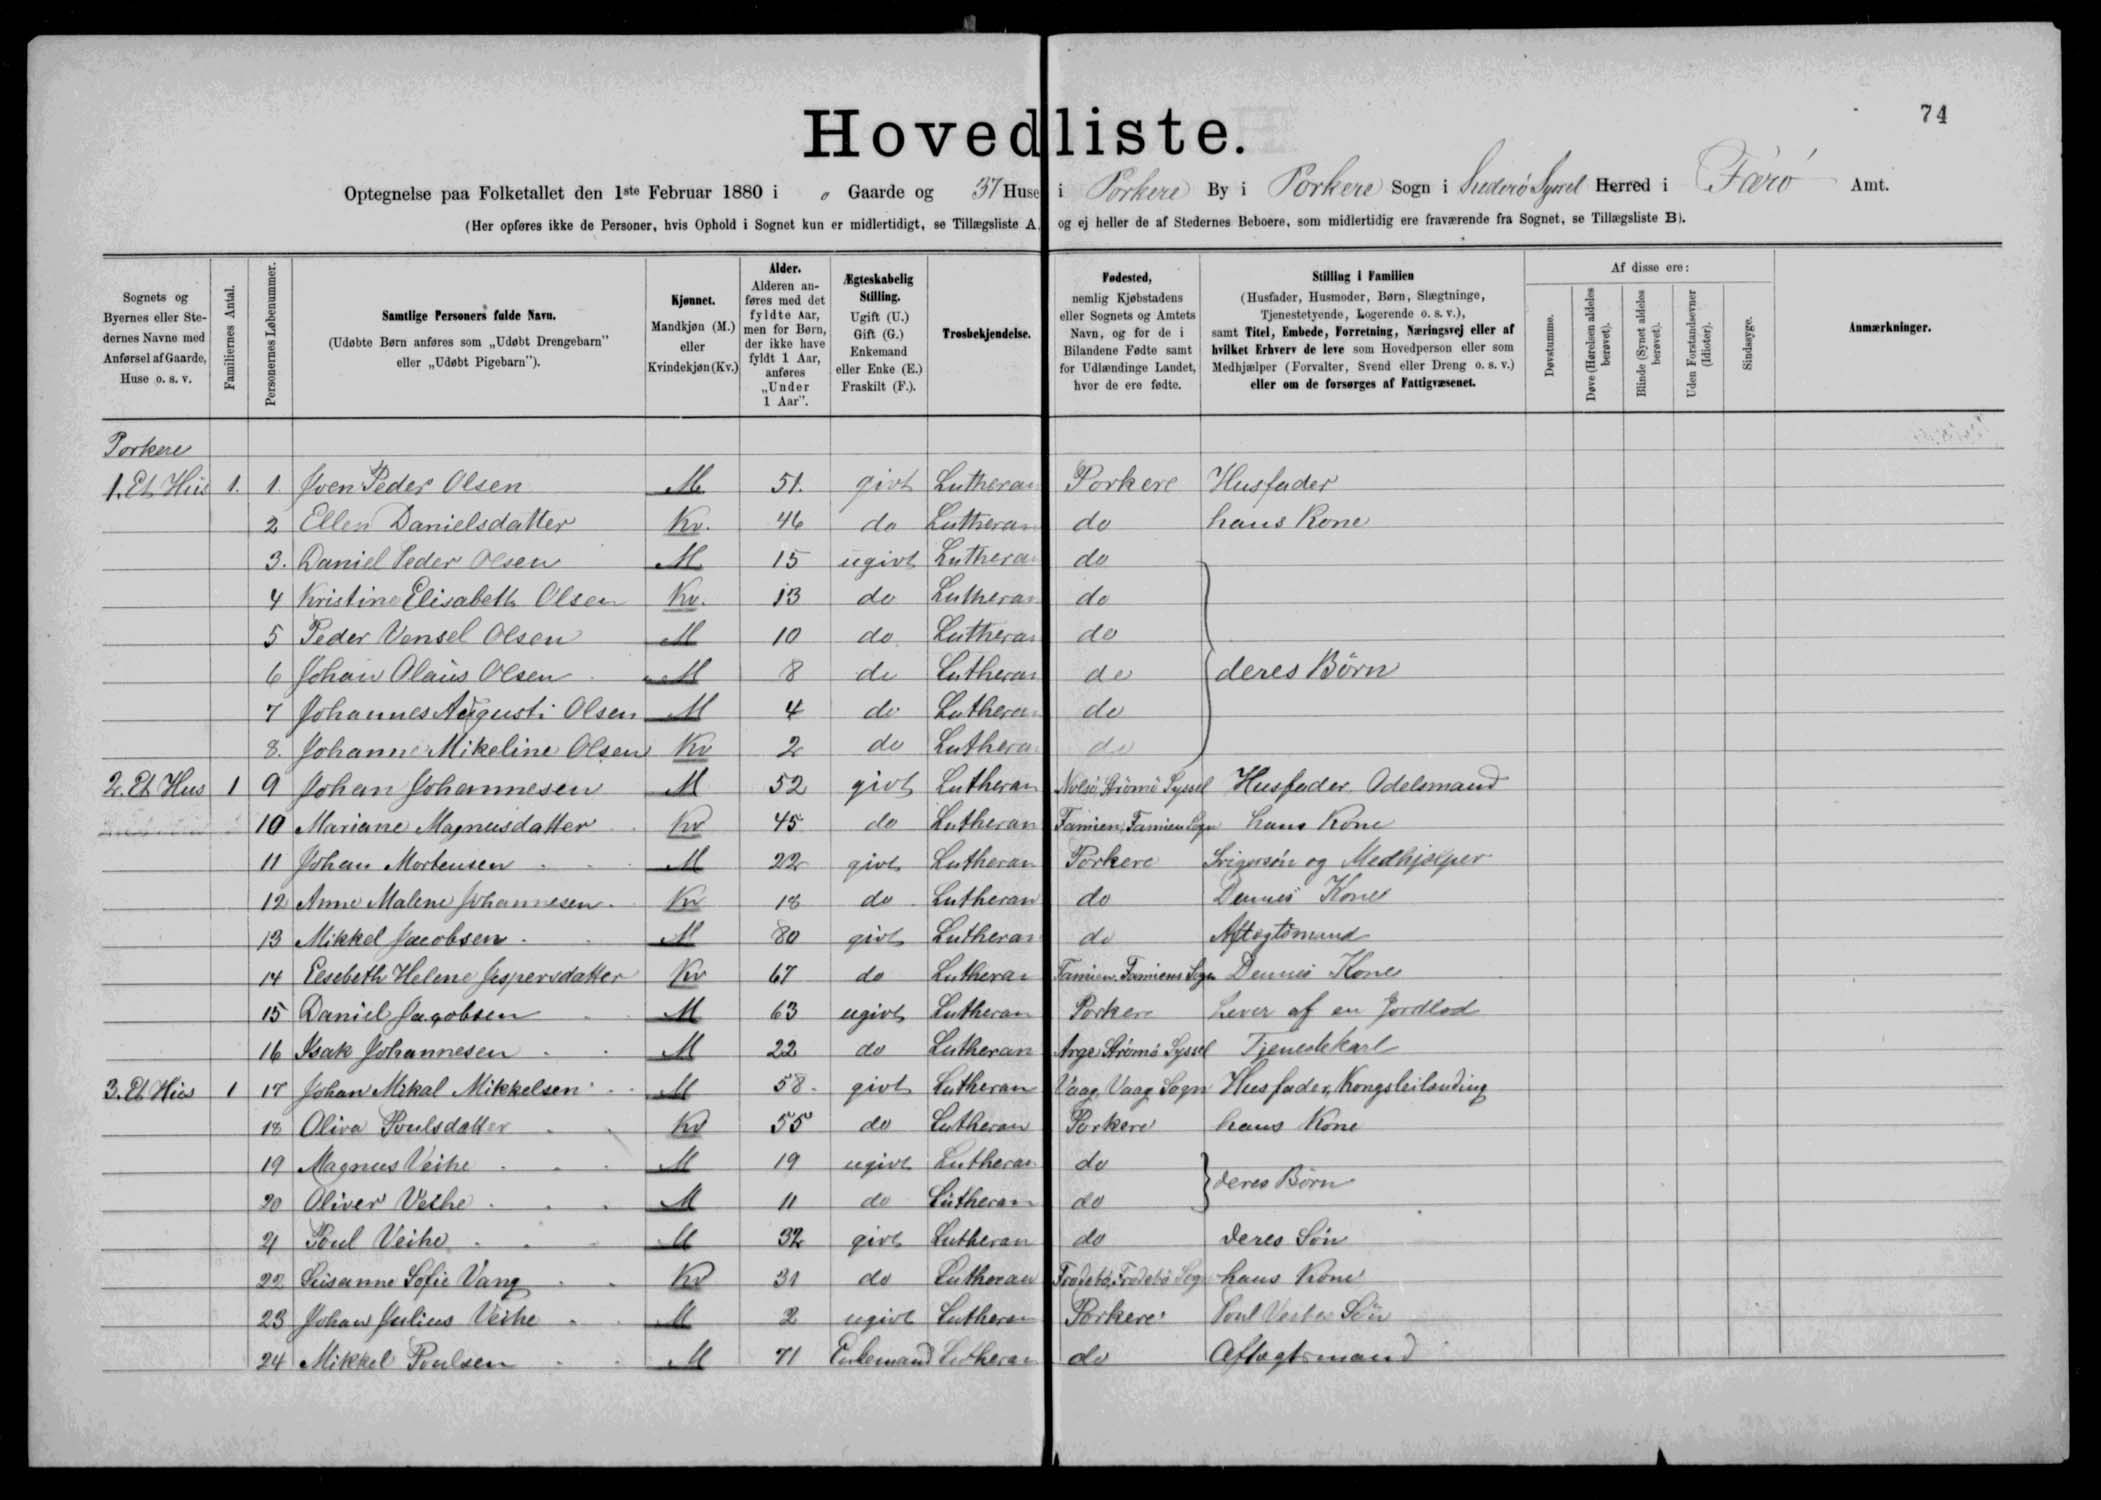 74
Hovedliste.
Optegnelse paa Folketallet den 1ste Februar 1880 i " Gaarde og 37 Huse i Porkere By i Porkere Sogn i Suderö Syssel Herred i Færö Amt.
(Her opføres ikke de Personer, hvis Ophold i Sognet kun er midlertidigt, se Tillægsliste A, og ej heller de af Stedernes Beboere, som midlertidig ere fraværende fra Sognet, se Tillægsliste B).
Sognets og Byernes eller Stedernes Navne med Anførsel af Gaarde, Huse o. s. v.
Familiernes Antal.
Personernes Løbenummer.
Samtlige Personers fulde Navn. (Udøbte Børn anføres som „Udøbt Drengebarn" eller „Udøbt Pigebarn").
Kjønnet. Mandkjøn (M.) eller Kvindekjøn (Kv.)
Alder. Alderen anføres med det fyldte Aar, men for Børn, der ikke have fyldt 1 Aar, anføres „Under 1 Aar".
Ægteskabelig Stilling. Ugift (U.) Gift (G.) Enkemand eller Enke (E.) Fraskilt (F.).
Trosbekjendelse.
Fødested, nemlig Kjøbstadens eller Sognets og Amtets Navn, og for de i Bilandene Fødte samt for Udlændinge Landet, hvor de ere fødte.
Stilling i Familien (Husfader, Husmoder, Børn, Slægtninge, Tjenestetyende, Logerende o. s. v.), samt Titel, Embede, Forretning, Næringsvej eller af hvilket Erhverv de leve som Hovedperson eller som Medhjælper (Forvalter, Svend eller Dreng o. s. v.) eller om de forsørges af Fattigvæsenet.
Af disse ere:
Døvstumme.
Døve (Hørelsen aldeles berøvet).
Blinde (Synet aldeles berøvet).
Uden Forstandsevner (Idioter).
Sindssyge.
Anmærkninger.
Porkere
1. Et Hus 1. 1. Joen Peder Olsen M 51. givt Lutheran Porkere Husfader
2 Ellen Danielsdatter Kv. 46 do Lutheran do hans Kone
3. Daniel Peder Olsen M 15 ugivt Lutheran do
4 Kristine Elisabeth Olsen Kv. 13 do Lutheran do
5 Peder Vensel Olsen M 10 do Lutheran do
6 Johan Olaus Olsen M 8 do Lutheran do deres Börn
7 Johannes Augusti Olsen M 4 do Lutheran do
8. Johanne Mikeline Olsen Kv 2 do Lutheran do
2. Et Hus 1 9 Johan Johannesen M 52 givt Lutheran Nolsö Strömö Syssel Husfader Odelsmand
10 Mariane Magnusdatter Kv 45 do Lutheran Famien, Famien Sogn hans Kone
11 Johan Mortensen M 22 givt Lutheran Porkere Svigersön og Medhjelper
12 Anne Malene Johannesen Kv 18 do Lutheran do Dennes Kone
13 Mikkel Jacobsen M 80 givt Lutheran do Aftægtsmand
14 Elsebeth Helene Jespersdatter Kv 67 do Lutheran Famien, Famiens Sogn Dennes Kone
15 Daniel Jacobsen M 63 ugivt Lutheran Porkere Lever af en Jordlod
16 Isak Johannesen M 22 do Lutheran Arge Strömö Syssel Tjenestekarl
3. Et Hus 1 17 Johan Mikal Mikkelsen M 58 givt Lutheran Vaag, Vaag Sogn Husfader, Kongsleilænding
18 Oliva Poulsdatter Kv 55 do Lutheran Porkere hans Kone
19 Magnus Veihe M 19 ugivt Lutheran do deres Börn
20 Oliver Veihe M 11 do Lutheran do
21 Poul Veihe M 32 givt Lutheran do deres Sön
22 Susanne Sofie Vang Kv 31 do Lutheran Frodebö, Frodebö Sog hans Kone
23 Johan Julius Veihe M 2 ugivt Lutheran Porkere Poul Veihes Sön
24 Mikkel Poulsen M 71 Enkemand Lutheran do Aftægtsmand